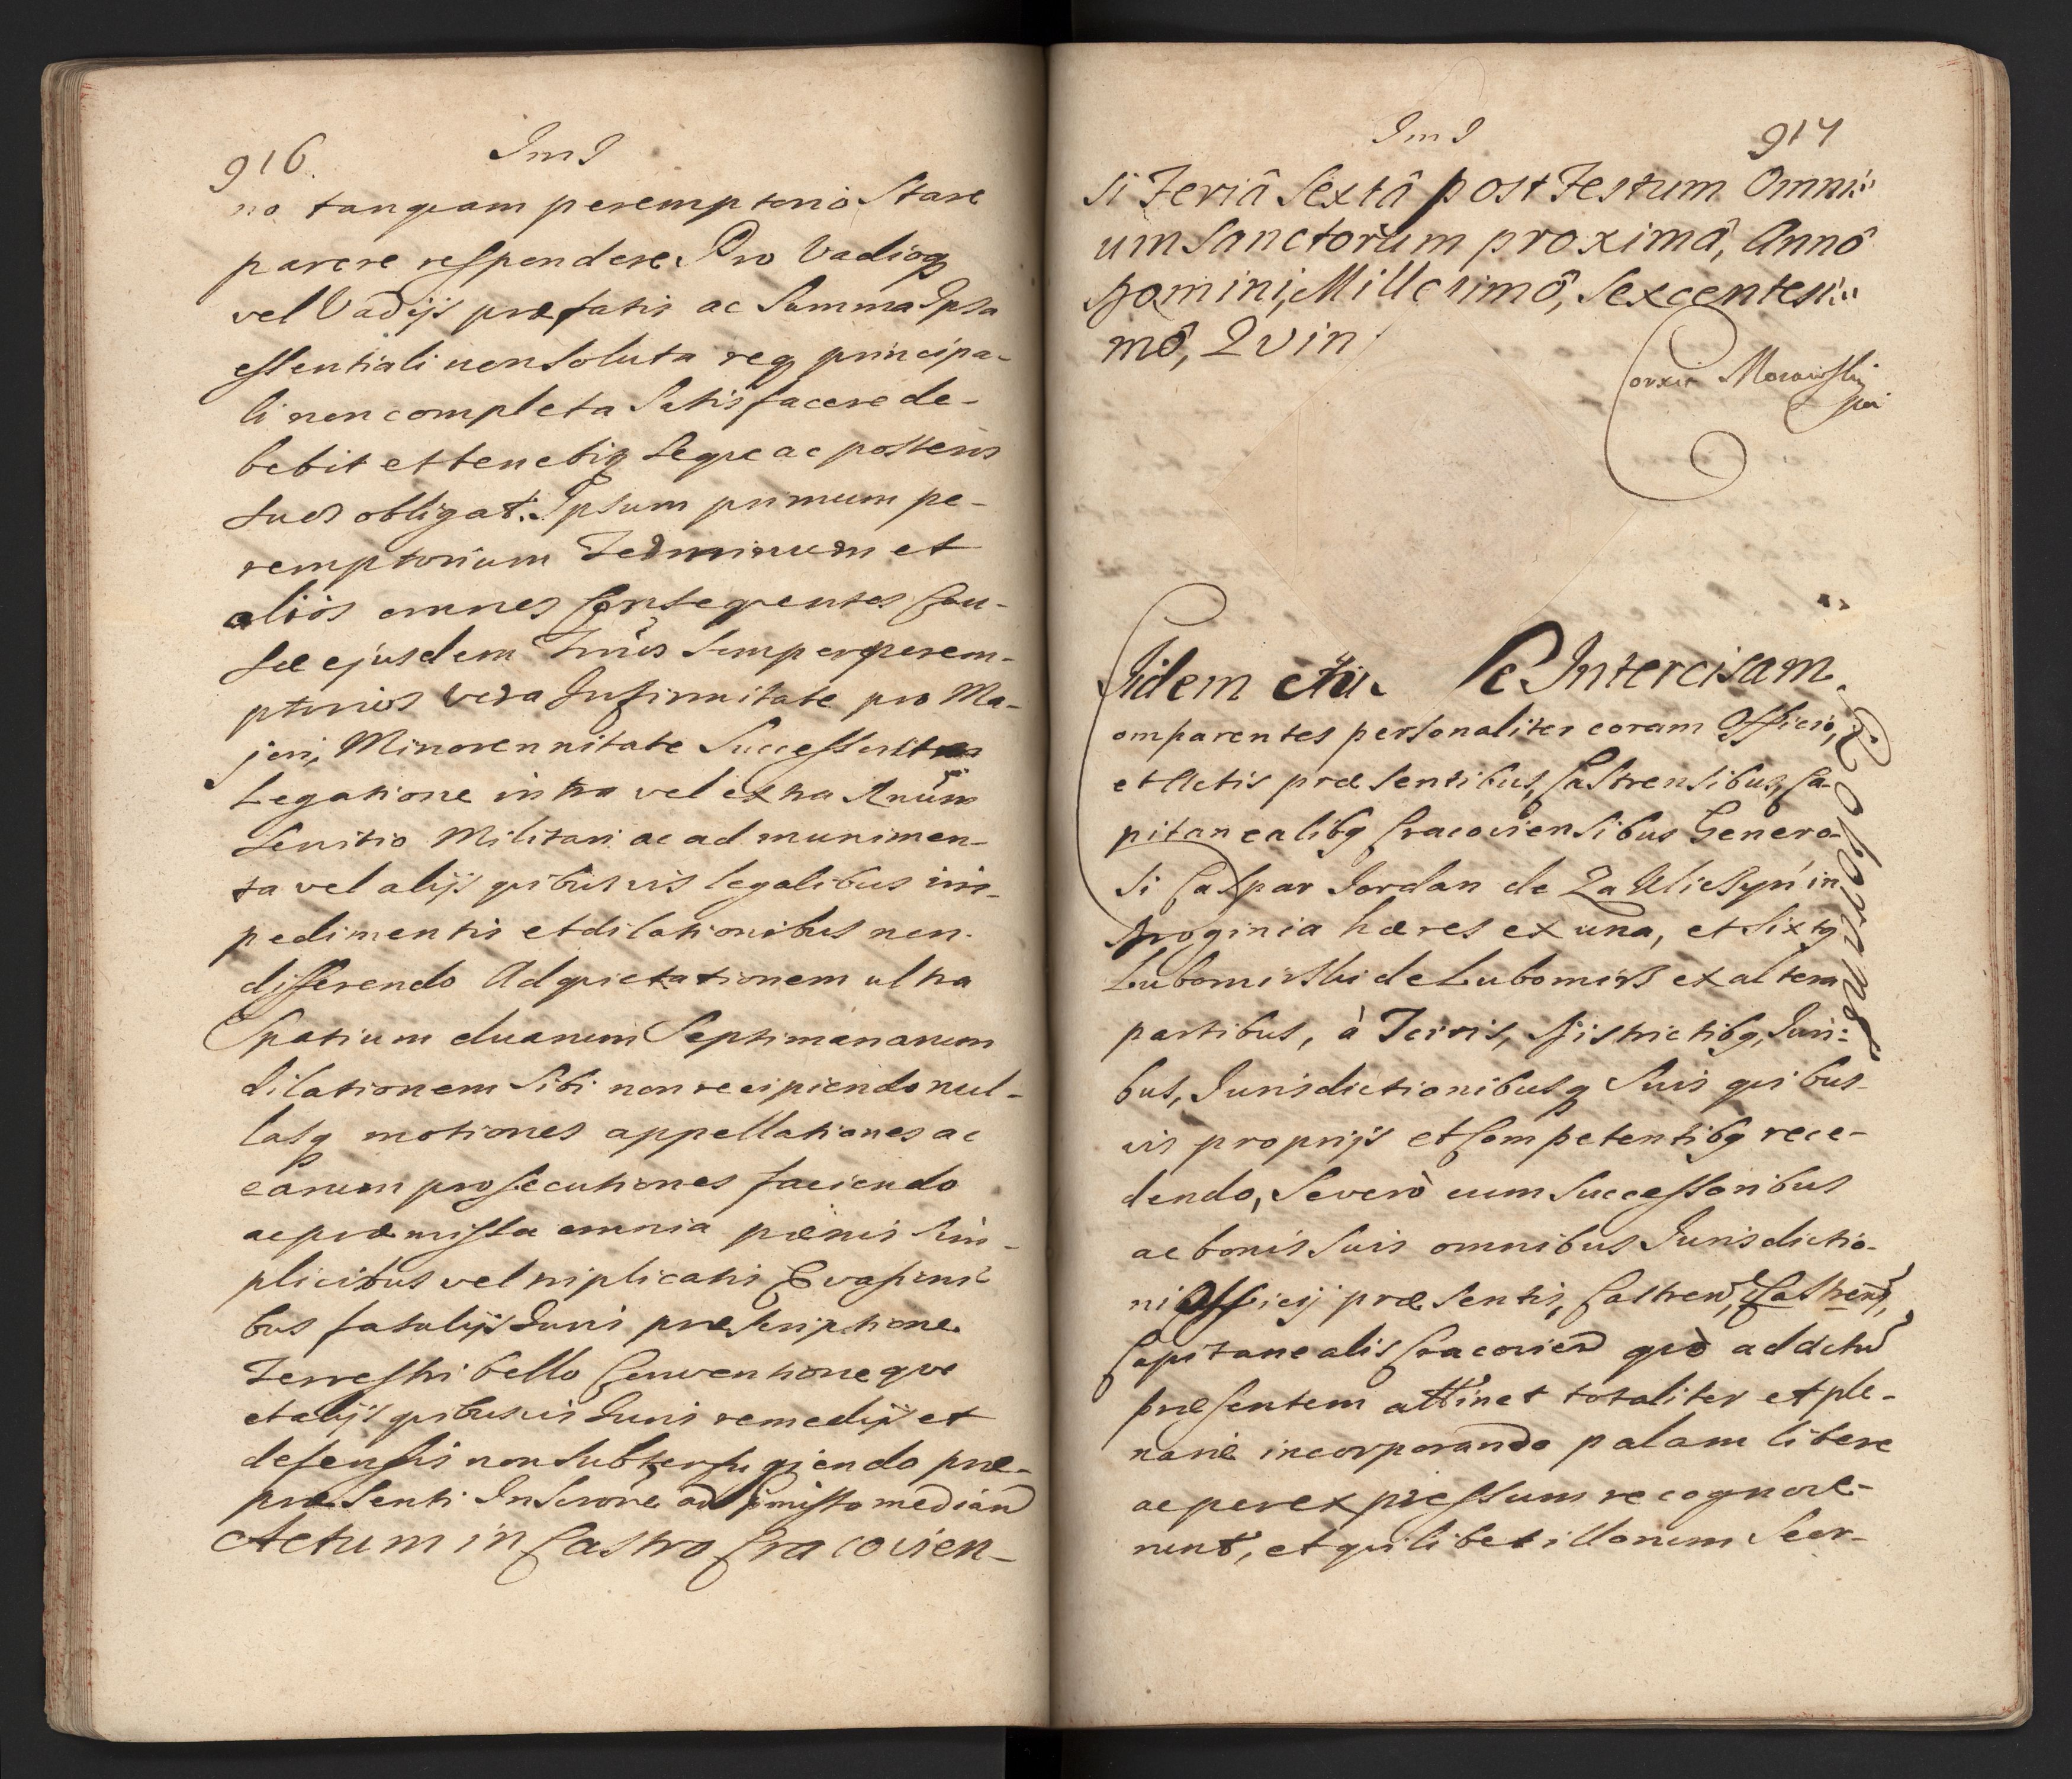 916. Im I
no tanquam peremptorio Stare
parere respondere Pro Vadioq
vel Vadijs præfatis ac Summa Ipsa
essentiali non Soluta req principa-
li non completa Satisfacere de-
bebit et tenebitq Seque ac posteros
suos obligat. Ipsum primum pe-
remptorium Terminum et
alios omnes Consequentes Cau-
sæ ejusdem Tmōs Semper perem-
ptorios vera Infirmitate pro Ma-
jori, Minorennitate Successorum
Legatione intra vel extra Rnūm
Servitio Militari ac ad munimen-
ta vel alijs quibusvis legalibus im-
pedimentis et dilationibus non
differendo Ad quietationem ultra
Spatium duarum Septimanarum
dilationem Sibi non recipiendo nul-
lasq motiones appellationes ac
earum prosecutiones faciendo
ac præmissa omnia pænis Sim-
plicibus vel triplicatis Evasioni
bus fatalijs Juris præscriptione
Terrestri bello Conventioneque
et alijs quibusvis Juris remedijs et
defensis non Subterfugiendo præ-
præsenti Inscrōne ad pmissa median
Actum in Castro Cracovien-
Im I 917
si Feriâ Sextâ post Festum Omni
um Sanctorum proximâ, Annô
Domini, Millesimô, Sexcentesi
mô, Quin
Correx Morawski
Iidem Se Intercisam
Comparentes personaliter coram Officio,
et Actis præsentibus, Castrensibus, Ca-
pitanealibq Cracoviensibus Genero-
si Caspar Jordan de Zakliczyn in
Droginia hæres ex una, et Sixtq
Lubomirski de Lubomirz ex altera
partibus, à Terris, Districtibq, Juri-
bus, Jurisdictionibusq Suis quibus-
vis proprijs et Competentibq rece-
dendo, Se verò cum Successoribus
ac bonis Suis omnibus Jurisdictio-
ni Officij præsentis, Castren, Castren,
Capitanealis Cracovien quò ad actū
præsentem attinet totaliter et ple-
nariè incorporando palam libere
ac per expressum recognove-
runt, et quilibet illorum Seor-